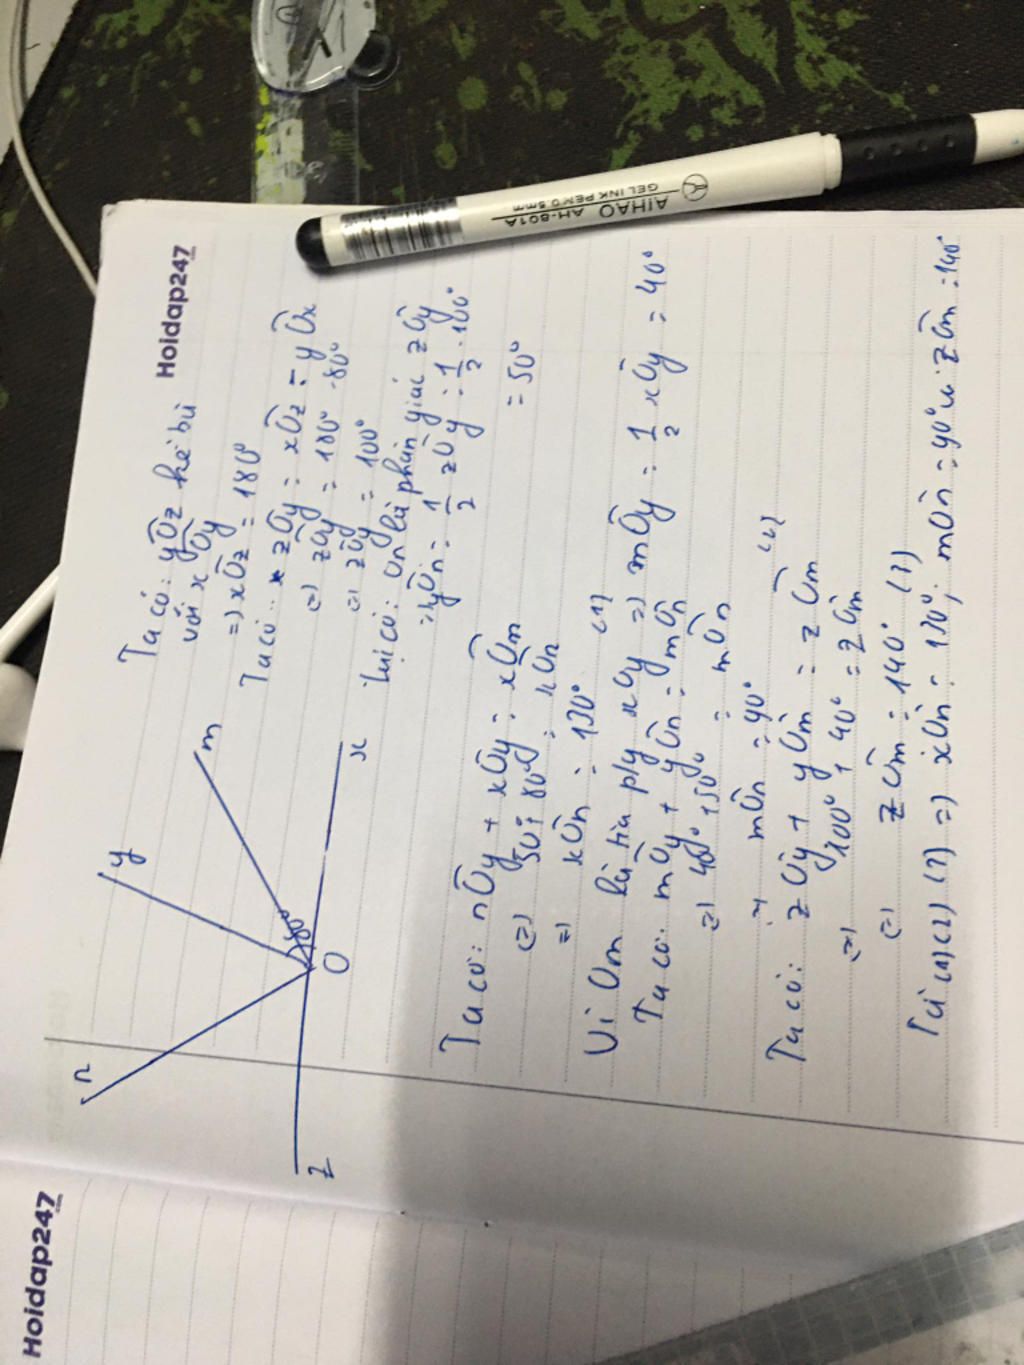 Hoidap247
Hoidap247
AIHAO AH-801A
GEL INK PEN 0.5mm
n
y
m
80°
z
O
x
Ta có: yÔz kề bù
với xÔy
=) xÔz = 180°
Ta có: zÔy = xÔz - yÔx
(=) zÔy = 180° - 80°
(=) zÔy = 100°
Lại có: On là phân giác zÔy
=) yÔn = 1/2 zÔy = 1/2 . 100°
= 50°
Ta có: nÔy + xÔy = xÔn
(=) 50° + 80° = xÔn
=) xÔn = 130° (1)
Vì Om là tia p/g xOy =) mÔy = 1/2 xÔy = 40°
Ta có: mÔy + yÔn = mÔn
(=) 40° + 50° = mÔn
=) mÔn = 90° (2)
Ta có: zÔy + yÔm = zÔm
(=) 100° + 40° = zÔm
(=) zÔm = 140° (3)
Từ (1) (2) (3) =) xÔn = 130°, mÔn = 90° và zÔm = 140°